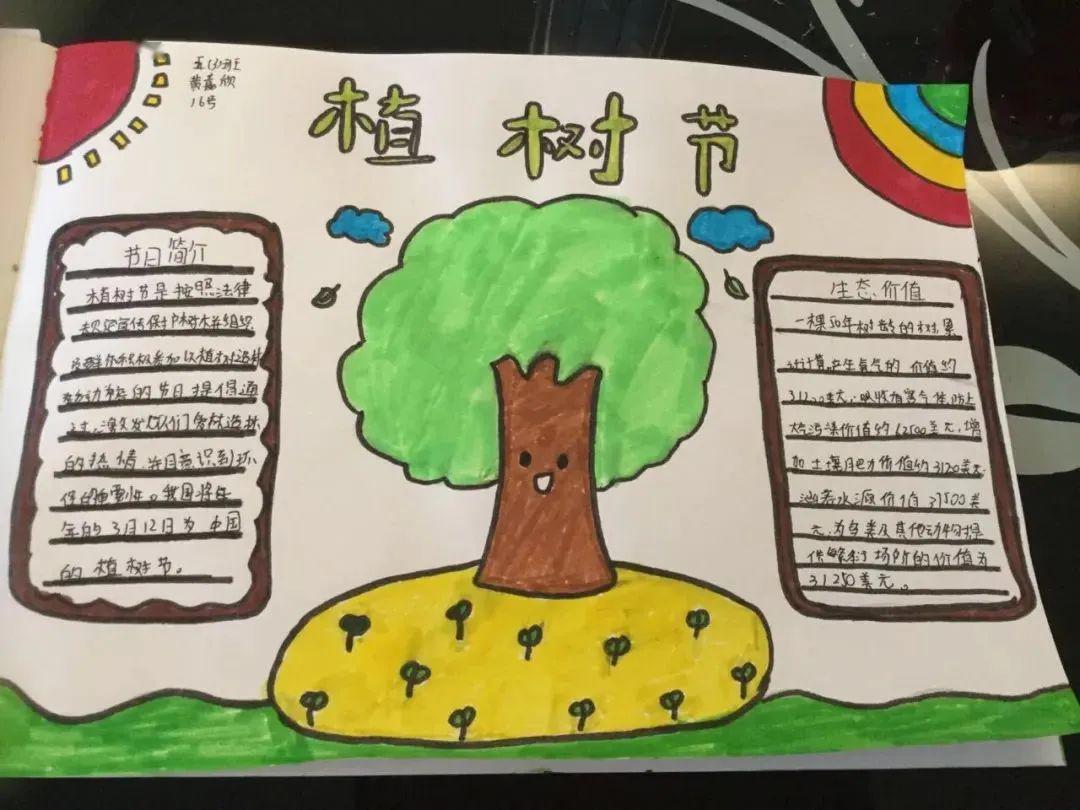 五(3)班
黄嘉欣
16号
植树节
节日简介
植树节是按照法律
规定宣传保护树木并组织
群众积极参加以植树造林
活动为的节日提倡通
过激发人们爱林造林
的热情并且意识到环
保的重要性。我国将每
年的3月12日为中国
的植树节。
生态价值
一棵50年树龄的树,累
计计算,产生氧气的价值约
31200美元;吸收有害气体,防止
大气污染价值约62500美元,增
加土壤肥力价值约31200美元.
涵养水源价值37500美
元,为鸟类及其他动物提
供繁衍场所的价值为
31250美元。